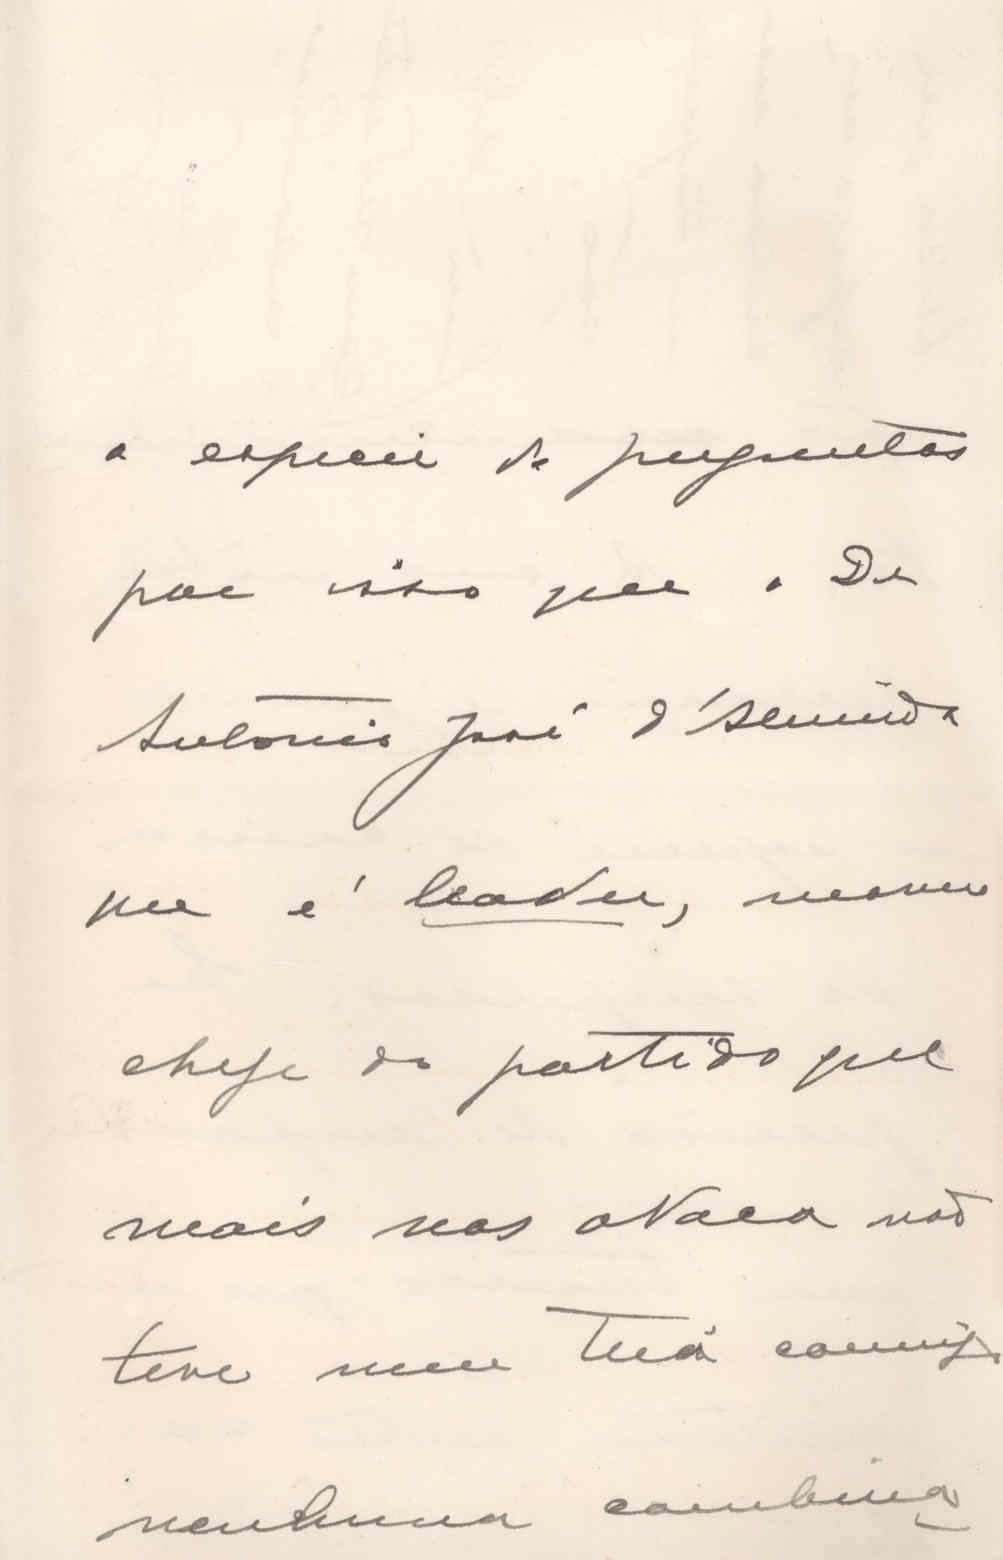 a especie de perguntas
por isso que o Dr
Antonio José d'Almeida
que é leader, mesmo
chefe do partido que
mais nos ataca não
teve nem terá commigo
nenhuma combina